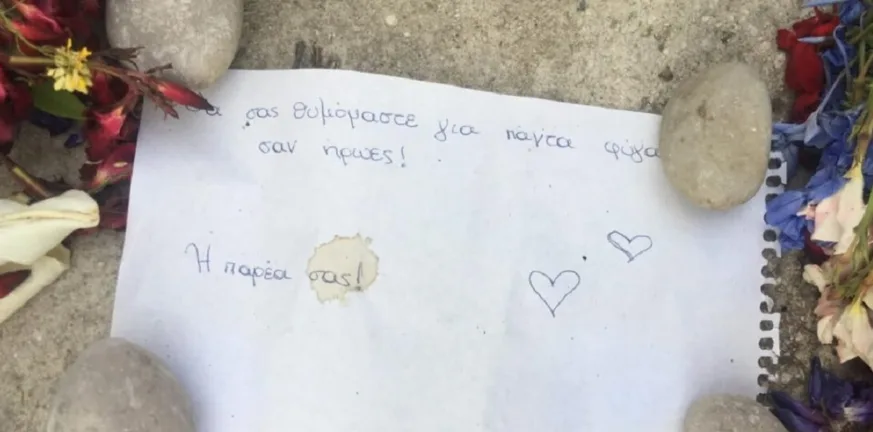 σας θυμόμαστε για πάντα
σαν ήρωες!
Η παρέα σας!